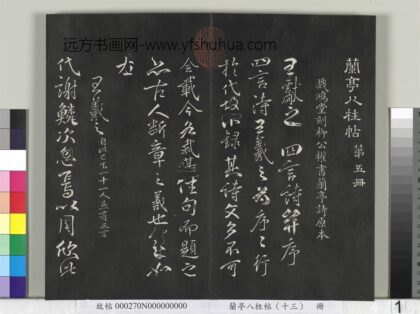 远方书画网-www.yfshuhua.com
蘭亭八柱帖 第五冊
戲鴻堂刻柳公權書蘭亭詩原本
王獻之 四言詩并序
四言詩王羲之為序〻行
於代故不錄其詩文多不可
全載今各裁其佳句而題之
亦古人斷章之義也 如
左
王羲之 自此已下十一人有五言
代謝鱗次忽焉以周欣此
故帖 000270N000000000 蘭亭八柱帖（十三） 冊
1